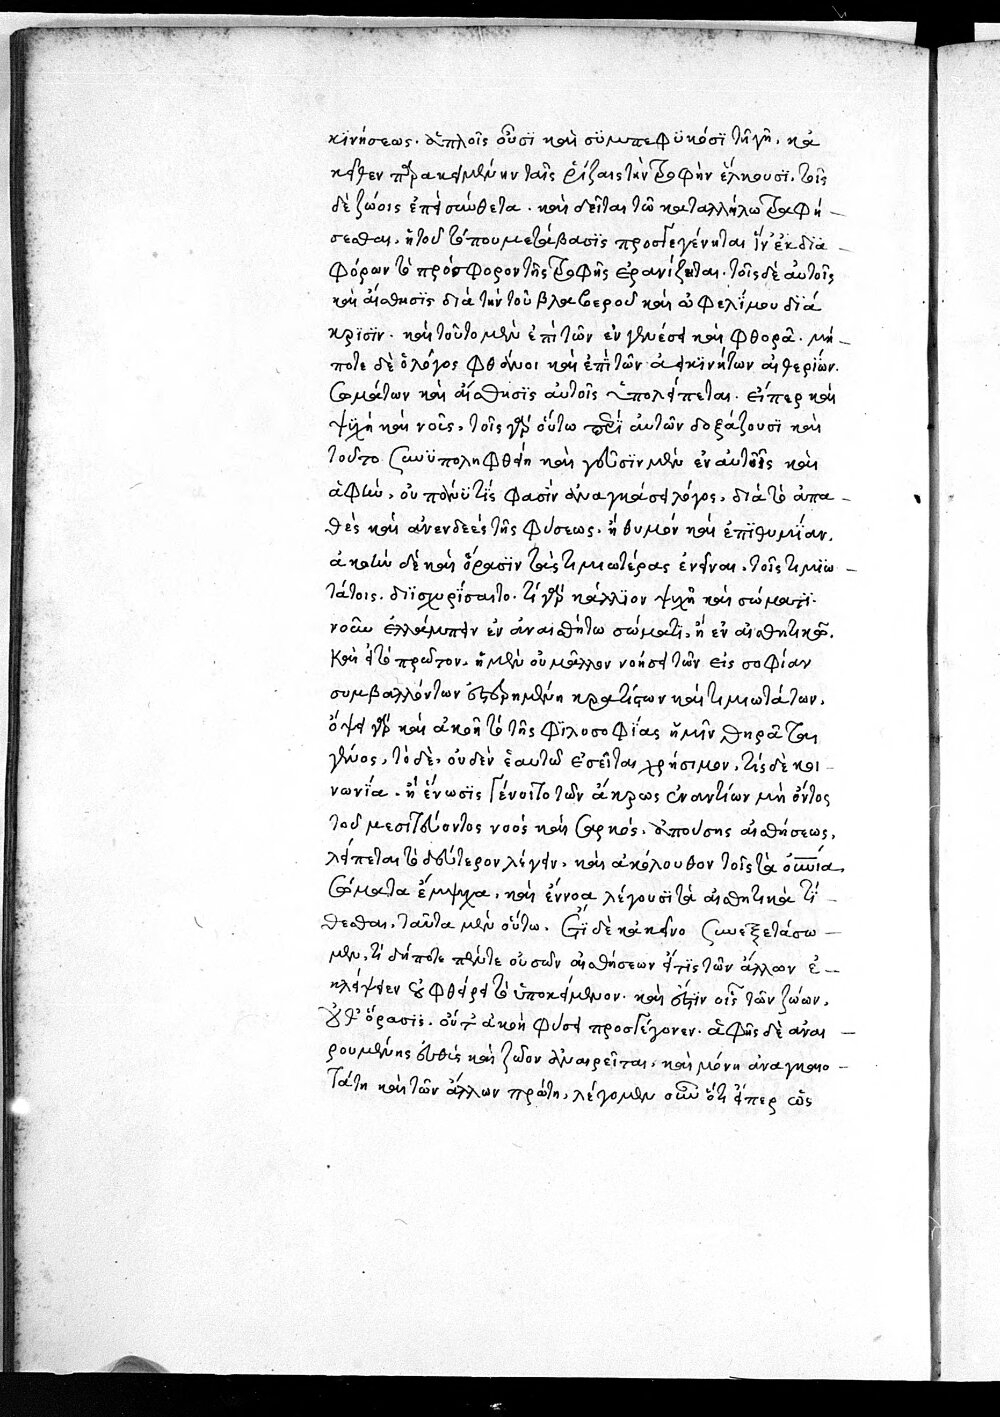 κϊνήσεως. ἁπλοῖς οὖσϊ καὶ συμπεφϋκόσϊ τῆ γῆ, κἀ
κεῖθεν παρακειμένην ταῖς ῥίζαις τὴν τροφὴν ἕλκουσϊ. τοῖς
δὲ ζώοις ἐπεὶ σύνθετα. καὶ δεῖται τῶ καταλλήλω τραφή –
σεσθαι, ἡ τοῦ τόπου μετάβασϊς προσγεγένηται ἵν' ἐκ δϊα –
φόρων τὸ πρόσφορον τῆς τροφῆς ἐρανίζηται. τοῖς δὲ αὐτοῖς
καὶ αἴσθησϊς διὰ τὴν τοῦ βλαβεροῦ καὶ ὠφελίμου δϊά
κρϊσϊν. καὶ τοῦτο μὲν ἐπὶ τῶν ἐν γενέσει καὶ φθορᾶ. μή –
ποτε δὲ ὁ λόγος φθάνοι καὶ ἐπὶ τῶν ἀεικϊνήτων αἰθερίων.
σωμάτων καὶ αἴσθησϊς αὐτοῖς ὑπολείπεται. εἴπερ καὶ
ψϋχὴ καὶ νοῦς, τοῖς γὰρ οὕτω περὶ αὐτῶν δοξάζουσϊ καὶ
τοῦτο συνϋποληφθείη καὶ γεῦσϊν μὲν ἐν αὐτοῖς καὶ
ἁφὴν, οὐ πολύ τϊς φασὶν ἀναγκάσει λόγος, διὰ τὸ ἀπα –
θὲς καὶ ἀνενδεὲς τῆς φύσεως. ἢ θυμὸν καὶ ἐπϊθυμίαν.
ἀκοὴν δὲ καὶ ὅρασϊν τὰς τιμιωτέρας ἐνεῖναι, τοῖς τιμϊω –
τάτοις. δϊϊσχυρίσαιτο. τί γὰρ κάλλϊον ψυχῆ καὶ σώματϊ.
νοῦν ἐλλάμπειν ἐν ἀναισθήτω σώματϊ, ἢ ἐν αἰσθητικῶ.
καὶ εἰ τὸ πρῶτον, ἢ μὲν οὐ μᾶλλον νοήσει τῶν εἰς σοφίαν
συμβαλλόντων ἐστερημένη κρατίστων καὶ τιμιωτάτων,
ὄψει γὰρ καὶ ἀκοῆ τὸ τῆς φϊλοσοφίας ἡμῖν θηρᾶται
γένος, τὸ δὲ, οὐδὲν ἑαυτῶ ἐσεῖται χρήσιμον, τίς δὲ κοι –
νωνία. ἢ ἕνωσϊς γένοιτο τῶν ἄκρως ἐναντίων μὴ ὄντος
τοῦ μεσιτεύοντος νοὸς καὶ σαρκός. ἀπούσης αἰσθήσεως,
λείπεται τὸ δεύτερον λέγειν, καὶ ἀκόλουθον τοῖς τὰ οὐράνια,
σώματα ἔμψυχα, καὶ ἔννοα λέγουσϊ τὰ αἰσθητικὰ τί –
θεσθαι, ταῦτα μὲν οὕτω. Ἔτϊ δὲ κἀκεῖνο συνεξετάσω –
μεν, τί δήποτε πέντε οὐσῶν αἰσθήσεων εἴ τϊς τῶν ἄλλων ἐ –
κλείψειεν οὐ φθείρει τὸ ὑποκείμενον. καὶ ἔστϊν οἷς τῶν ζώων,
οὔθ' ὅρασϊς. οὔτ' ἀκοὴ φύσει προσγέγονεν. ἁφῆς δὲ ἀναι –
ρουμένης εὐθὺς καὶ ζῶον ἀναιρεῖται, καὶ μόνη ἀναγκαιο –
τάτη καὶ τῶν ἄλλων πρώτη, λέγομεν οὖν ὅτι εἴπερ ὡς